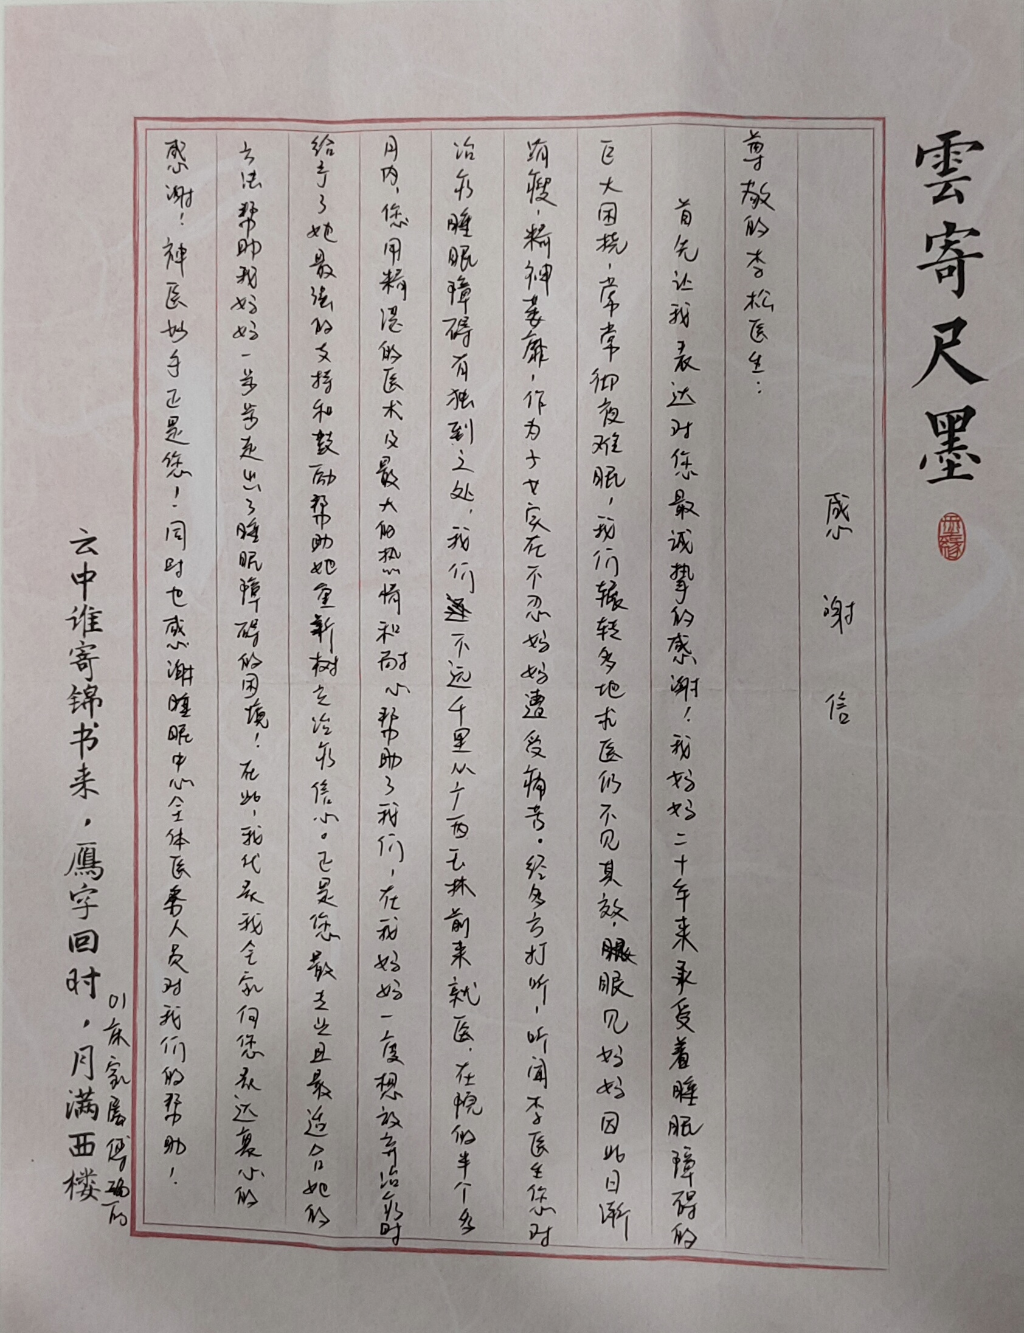 雲寄尺墨
感谢信
尊敬的李松医生：
首先让我表达对您最诚挚的感谢！我妈妈二十年来承受着睡眠障碍的
巨大困扰，常常彻夜难眠，我们辗转多地求医仍不见其效，眼见妈妈因此日渐
消瘦，精神萎靡，作为子女实在不忍妈妈遭受痛苦。经多方打听，听闻李医生您对
治疗睡眠障碍有独到之处，我们不远千里从广西玉林前来就医，在院的半个多
月内，您用精湛的医术及最大的热情和耐心帮助了我们，在我妈妈一度想放弃治疗时
给予了她最强的支持和鼓励帮助她重新树立治疗信心。正是您最专业且最适合她的
方法帮助我妈妈一步步走出了睡眠障碍的困境！在此，我代表我全家向您表达衷心的
感谢！神医妙手正是您！同时也感谢睡眠中心全体医务人员对我们的帮助！
01床家属
云中谁寄锦书来，雁字回时，月满西楼